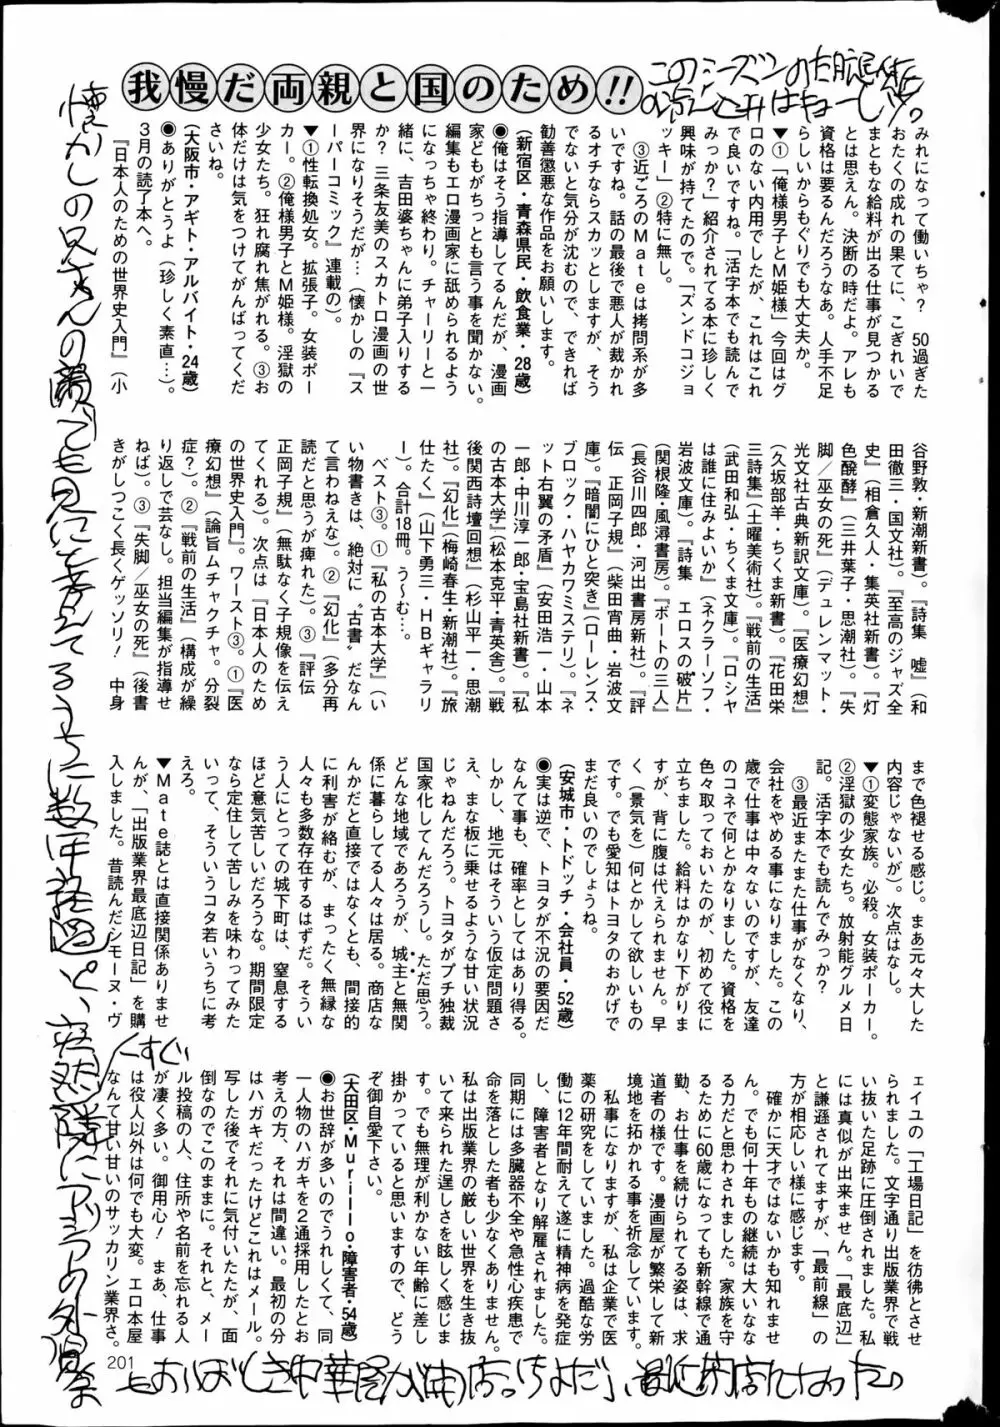 我慢だ両親と国のため!!
みれになって働いちゃ? 50過ぎた
おたくの成れの果てに、こぎれいで
まともな給料が出る仕事が見つかる
とは思えん。決断の時だよ。アレも
資格は要るんだろうなあ。人手不足
らしいからもぐりでも大丈夫か。
▼①「俺様男子とM姫様」今回はグ
ロのない内用でしたが、これはこれ
で良いですね。「活字本でも読んで
みっか?」紹介されてる本に珍しく
興味が持てたので。「ズンドコジョ
ッキー」②特に無し。
③近ごろのMateは拷問系が多
いですね。話の最後で悪人が裁かれ
るオチならスカッとしますが、そう
でないと気分が沈むので、できれば
勧善懲悪な作品をお願いします。
(新宿区・青森県民・飲食業・28歳)
◉俺はそう指導してるんだが、漫画
家どもがちっとも言う事を聞かない。
編集もエロ漫画家に舐められるよう
になっちゃ終わり。チャーリーと一
緒に、吉田婆ちゃんに弟子入りする
か? 三条友美のスカトロ漫画の世
界になりそうだが…(懐かしの『ス
ーパーコミック』連載の)。
▼①性転換処女。拡張子。女装ポー
カー。②俺様男子とM姫様。淫獄の
少女たち。狂れ腐れ焦がれる。③お
体だけは気をつけてがんばってくだ
さいね。
(大阪市・アギト・アルバイト・24歳)
◉ありがとうよ(珍しく素直…)。
3月の読了本へ。
『日本人のための世界史入門』(小
谷野敦・新潮新書)。『詩集 嘘』(和
田徹三・国文社)。『至高のジャズ全
史』(相倉久人・集英社新書)。『灯
色醗酵』(三井葉子・思潮社)。『失
脚/巫女の死』(デュレンマット・
光文社古典新訳文庫)。『医療幻想』
(久坂部羊・ちくま新書)。『花田栄
三詩集』(土曜美術社)。『戦前の生活』
(武田和弘・ちくま文庫)。『ロシヤ
は誰に住みよいか』(ネクラーソフ・
岩波文庫)。『詩集 エロスの破片』
(関根隆・風濤書房)。『ボートの三人』
(長谷川四郎・河出書房新社)。『評
伝 正岡子規』(柴田宵曲・岩波文
庫)。『暗闇にひと突き』(ローレンス・
ブロック・ハヤカワミステリ)。『ネ
ット右翼の矛盾』(安田浩一・山本
一郎・中川淳一郎・宝島社新書)。『私
の古本大学』(松本克平・青英舎)。『戦
後関西詩壇回想』(杉山平一・思潮
社)。『幻化』(梅崎春生・新潮社)。『旅
仕たく』(山下勇三・HBギャラリ
ー)。合計18冊。う〜む…。
ベスト③。①『私の古本大学』(い
い物書きは、絶対に〝古書〟だなん
て言わねえな)。②『幻化』(多分再
読だと思うが痺れた)。③『評伝
正岡子規』(無駄なく子規像を伝え
てくれる)。次点は『日本人のため
の世界史入門』。ワースト③。①『医
療幻想』(論旨ムチャクチャ。分裂
症?)。②『戦前の生活』(構成が繰
り返しで芸なし。担当編集が指導せ
ねば)。③『失脚/巫女の死』(後書
きがしつこく長くゲッソリ! 中身
まで色褪せる感じ。まあ元々大した
内容じゃないが)。次点はなし。
▼①変態家族。必殺。女装ポーカー。
②淫獄の少女たち。放射能グルメ日
記。活字本でも読んでみっか?
③最近またまた仕事がなくなり、
会社をやめる事になりました。この
歳で仕事は中々ないのですが、友達
のコネで何とかなりました。資格を
色々取っておいたのが、初めて役に
立ちました。給料はかなり下がりま
すが、背に腹は代えられません。早
く(景気を)何とかして欲しいもの
です。でも愛知はトヨタのおかげで
まだ良いのでしょうね。
(安城市・トドッチ・会社員・52歳)
◉実は逆で、トヨタが不況の要因だ
なんて事も、確率としてはあり得る。
しかし、地元はそういう仮定問題さ
え、まな板に乗せるような甘い状況
じゃねんだろう。トヨタがプチ独裁
国家化してんだろうし。ただ思う。
どんな地域であろうが、城主と無関
係に暮らしてる人々は居る。商店な
んかだと直接ではなくとも、間接的
に利害が絡むが、まったく無縁な
人々も多数存在するはずだ。そうい
う人にとっての城下町は、窒息する
ほど意気苦しいだろうな。期間限定
なら定住して苦しみを味わってみた
いって、そういうコタ若いうちに考
えろ。
▼Mate誌とは直接関係ありませ
んが、「出版業界最底辺日記」を購
入しました。昔読んだシモーヌ・ヴ
ェイユの「工場日記」を彷彿とさせ
られました。文字通り出版業界で戦
い抜いた足跡に圧倒されました。私
には真似が出来ません。「最底辺」
と謙遜されてますが、「最前線」の
方が相応しい様に感じます。
確かに天才ではないかも知れませ
ん。でも何十年もの継続は大いな
る力だと思わされました。家族を守
るために60歳になっても新幹線で通
勤、お仕事を続けられてる姿は、求
道者の様です。漫画屋が繁栄して新
境地を拓かれる事を祈念しています。
私事になりますが、私は企業で医
薬の研究をしていました。過酷な労
働に12年間耐えて遂に精神病を発症
し、障害者となり解雇されました。
同期には多臓器不全や急性心疾患で
命を落とした者も少なくありません。
私は出版業界の厳しい世界を生き抜
いて来られた逞しさを眩しく感じま
す。でも無理が利かない年齢に差し
掛かっていると思いますので、どう
ぞ御自愛下さい。
(大田区・Murillo・障害者・54歳)
◉お世辞が多いのでうれしくて、同
一人物のハガキを2通採用したなんて
考えの方、それは間違い。最初の分
はハガキだったけどこれはメール。
写した後でそれに気付いたたが、面
倒なのでこのままに。それと、メー
ル投稿の人、住所や名前を忘れる人
が凄く多い。御用心! まあ、仕事
は役人以外は何でも大変。エロ本屋
なんて甘い甘いのサッカリン業界さ。
201